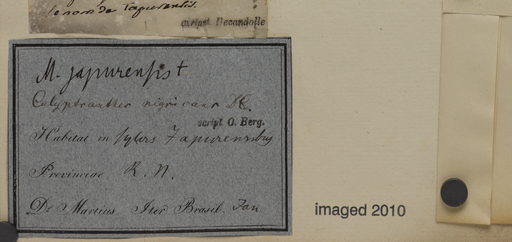 le nom de Tapurensis.
scripst Decandolle
M. japurensis †
Calyptranthes nigricans DC.
script. O. Berg.
Habitat in sylvis Japurensibus
Provinciae R. N.
Dr Martius Iter Brasil. Jan
imaged 2010